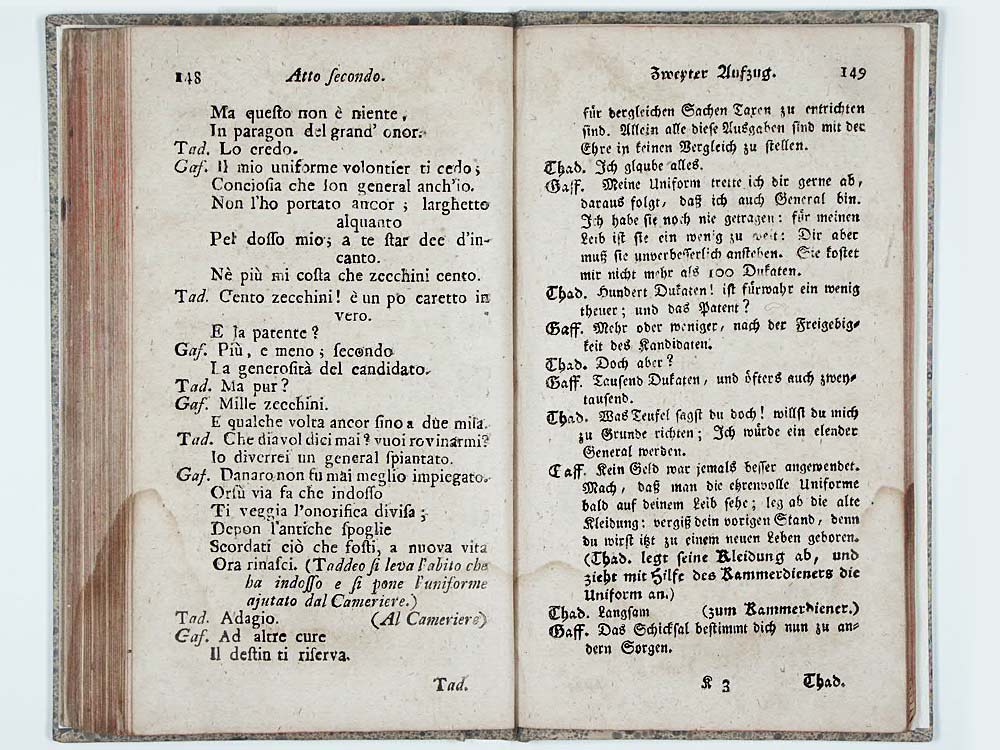 148 Atto ſecondo.
Ma queſto non è niente,
In paragon del grand' onor.
Tad. Lo credo.
Gaf. Il mio uniforme volontier ti cedo;
Concioſia che ſon general anch'io.
Non l'ho portato ancor; larghetto
alquanto
Pel doſſo mio; a te ſtar dee d'in-
canto.
Nè più mi coſta che zecchini cento.
Tad. Cento zecchini! è un pò caretto in
vero.
E la patente?
Gaf. Più, e meno; ſecondo
La generoſità del candidato.
Tad. Ma pur?
Gaf. Mille zecchini.
E qualche volta ancor ſino a due mila.
Tad. Che diavol dici mai? vuoi rovinarmi?
Io diverrei un general ſpiantato.
Gaf. Danaro non fu mai meglio impiegato.
Orſù via fa che indoſſo
Ti veggia l'onorifica diviſa;
Depon l'antiche ſpoglie
Scordati ciò che foſti, a nuova vita
Ora rinaſci. (Taddeo ſi leva l'abito che
ha indoſſo e ſi pone l'uniforme
ajutato dal Cameriere.)
Tad. Adagio. (Al Cameriere)
Gaf. Ad altre cure
Il deſtin ti riſerva.
Tad.
Zweyter Aufzug. 149
für dergleichen Sachen Taxen zu entrichten
ſind. Allein alle dieſe Ausgaben ſind mit der
Ehre in keinen Vergleich zu ſtellen.
Thad. Ich glaube alles.
Gaff. Meine Uniform trette ich dir gerne ab,
daraus folgt, daß ich auch General bin.
Ich habe ſie noch nie getragen: für meinen
Leib iſt ſie ein wenig zu weit: Dir aber
muß ſie unverbeſſerlich anſtehen. Sie koſtet
mir nicht mehr als 100 Dukaten.
Thad. Hundert Dukaten! iſt fürwahr ein wenig
theuer; und das Patent?
Gaff. Mehr oder weniger, nach der Freigebig-
keit des Kandidaten.
Thad. Doch aber?
Gaff. Tauſend Dukaten, und öfters auch zwey-
tauſend.
Thad. Was Teufel ſagſt du doch! willſt du mich
zu Grunde richten; Ich würde ein elender
General werden.
Gaff. Kein Geld war jemals beſſer angewendet.
Mach, daß man die ehrenvolle Uniforme
bald auf deinem Leib ſehe; leg ab die alte
Kleidung: vergiß dein vorigen Stand, denn
du wirſt itzt zu einem neuen Leben geboren.
(Thad. legt ſeine Kleidung ab, und
zieht mit Hilfe des Kammerdieners die
Uniform an.)
Thad. Langſam (zum Kammerdiener.)
Gaff. Das Schickſal beſtimmt dich nun zu an-
dern Sorgen.
K 3 Thad.